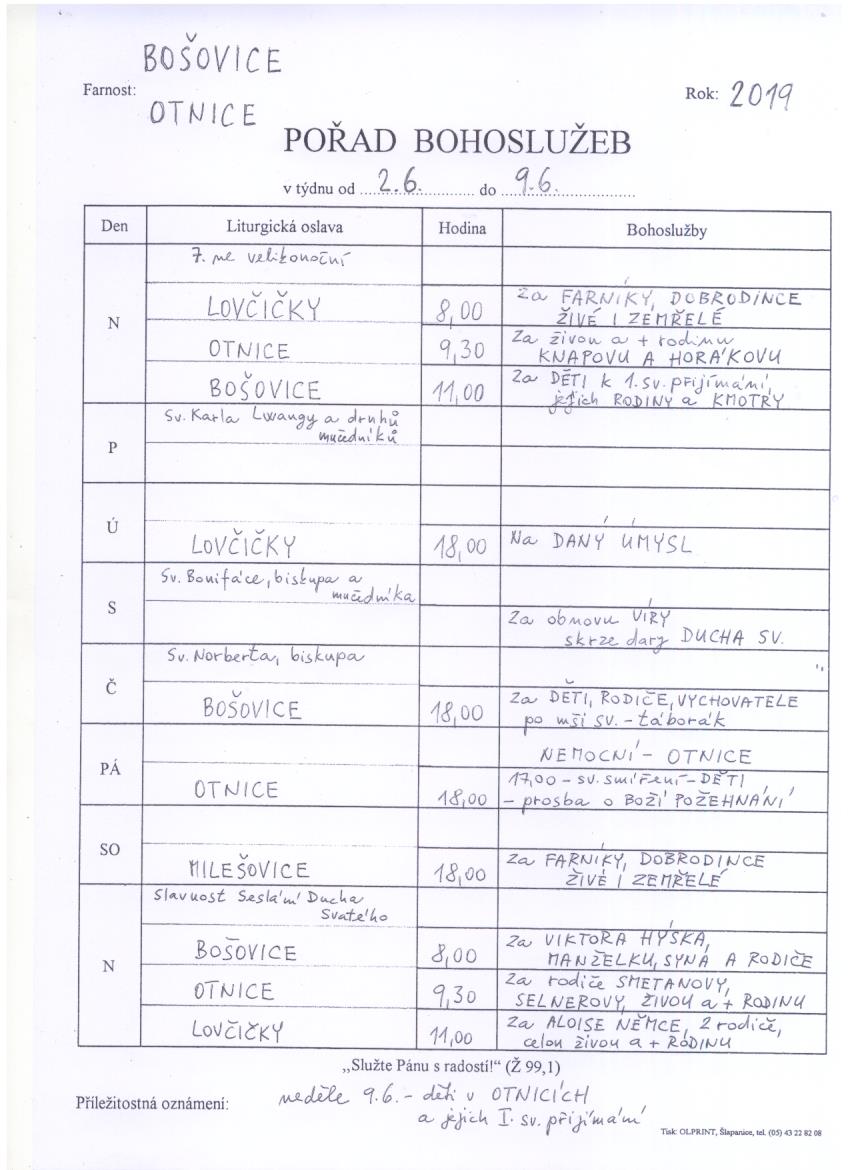 BOŠOVICE
Farnost:
OTNICE
Rok: 2019
POŘAD BOHOSLUŽEB
v týdnu od 2.6. do 9.6.
Den Liturgická oslava Hodina Bohoslužby
N
7. ne velikonoční
LOVČIČKY 8,00 Za FARNÍKY, DOBRODINCE
ŽIVÉ I ZEMŘELÉ
OTNICE 9,30 Za živou a + rodinu
KNAPOVU A HORÁKOVU
BOŠOVICE 11,00 Za DĚTI k 1. sv. přijímání,
jejich RODINY a KMOTRY
P
Sv. Karla Lwangy a druhů
mučedníků
Ú
LOVČIČKY 18,00 Na DANÝ ÚMYSL
S
Sv. Bonifáce, biskupa a
mučedníka
Za obnovu VÍRY
skrze dary DUCHA SV.
Č
Sv. Norberta, biskupa
BOŠOVICE 18,00 Za DĚTI, RODIČE, VYCHOVATELE
po mši sv. - táborák
PÁ
NEMOCNÍ - OTNICE
OTNICE 18,00 17,00 - sv. smíření - DĚTI
- prosba o BOŽÍ POŽEHNÁNÍ
SO
MILEŠOVICE 18,00 Za FARNÍKY, DOBRODINCE
ŽIVÉ I ZEMŘELÉ
N
Slavnost Seslání Ducha
Svatého
BOŠOVICE 8,00 Za VIKTORA HÝSKA,
MANŽELKU, SYNA A RODIČE
OTNICE 9,30 Za rodiče SMETANOVY,
SELNEROVY, ŽIVOU a + RODINU
LOVČIČKY 11,00 Za ALOISE NĚMCE, 2 rodiče,
celou živou a + RODINU
„Služte Pánu s radostí!“ (Ž 99,1)
Příležitostná oznámení: neděle 9.6. - děti v OTNICÍCH
a jejich I. sv. přijímání
Tisk: OLPRINT, Šlapanice, tel. (05) 43 22 82 08